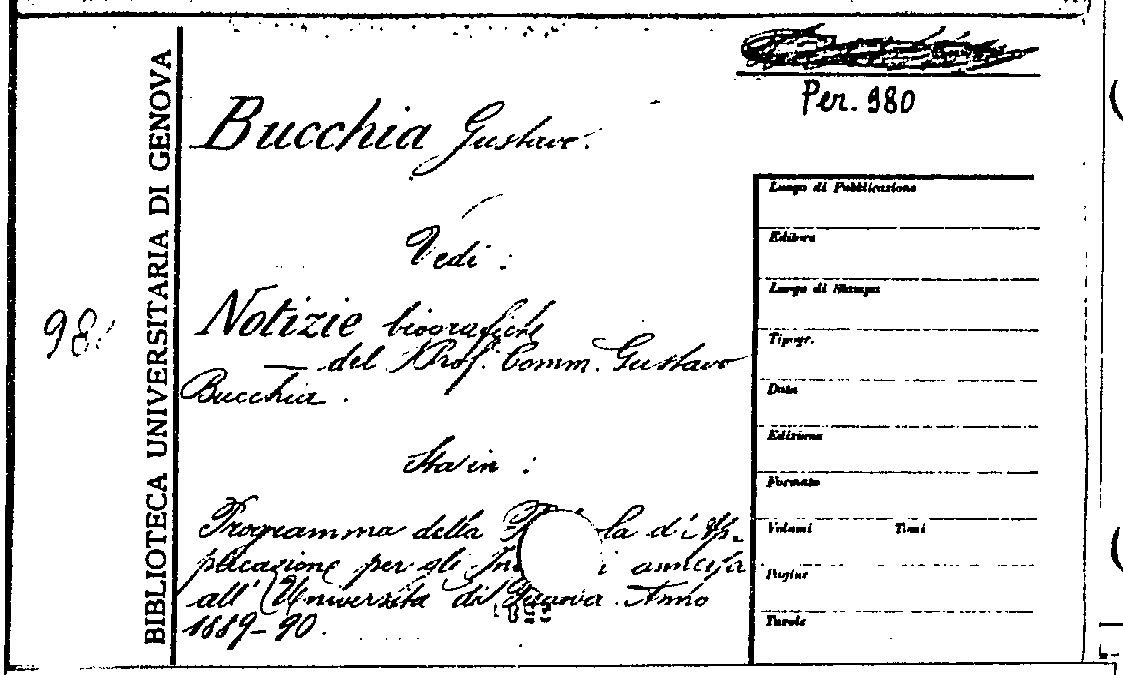 Per. 980
BIBLIOTECA UNIVERSITARIA DI GENOVA
Bucchia Gustavo.
Vedi :
Notizie biografiche
— del Prof. Comm. Gustavo
Bucchia .
Sta in :
Programma della la d'Ap-
plicazione per gli annessa
all' Università di Padova. Anno
1889-90.
Luogo di Pubblicazione
Editore
Luogo di Stampa
Tipogr.
Data
Edizione
Formato
Volumi Tomi
Pagine
Tavole